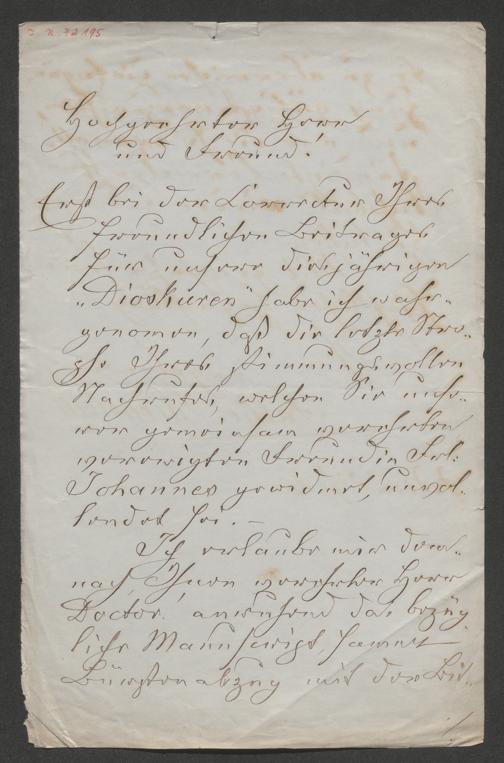 I. N. 72195
Hochgeehrter Herr
und Freund!
Erst bei der Correctur Ihres
freundlichen Beitrages
für unsere diesjährigen
„Dioskuren" habe ich wahr-
genomen, daß die letzte Stro-
phe Ihres stimmungsvollen
Nachrufes, welchen Sie unse-
rer gemeinsam verehrten
verewigten Freundin Frl:
Johannes gewidmet, unvol-
lendet sei. —
Ich erlaube mir dem-
nach, Ihnen verehrter Herr
Doctor, anruhend das bezüg-
liche Manuscript sammt
Bürstenabzug mit der Bit-